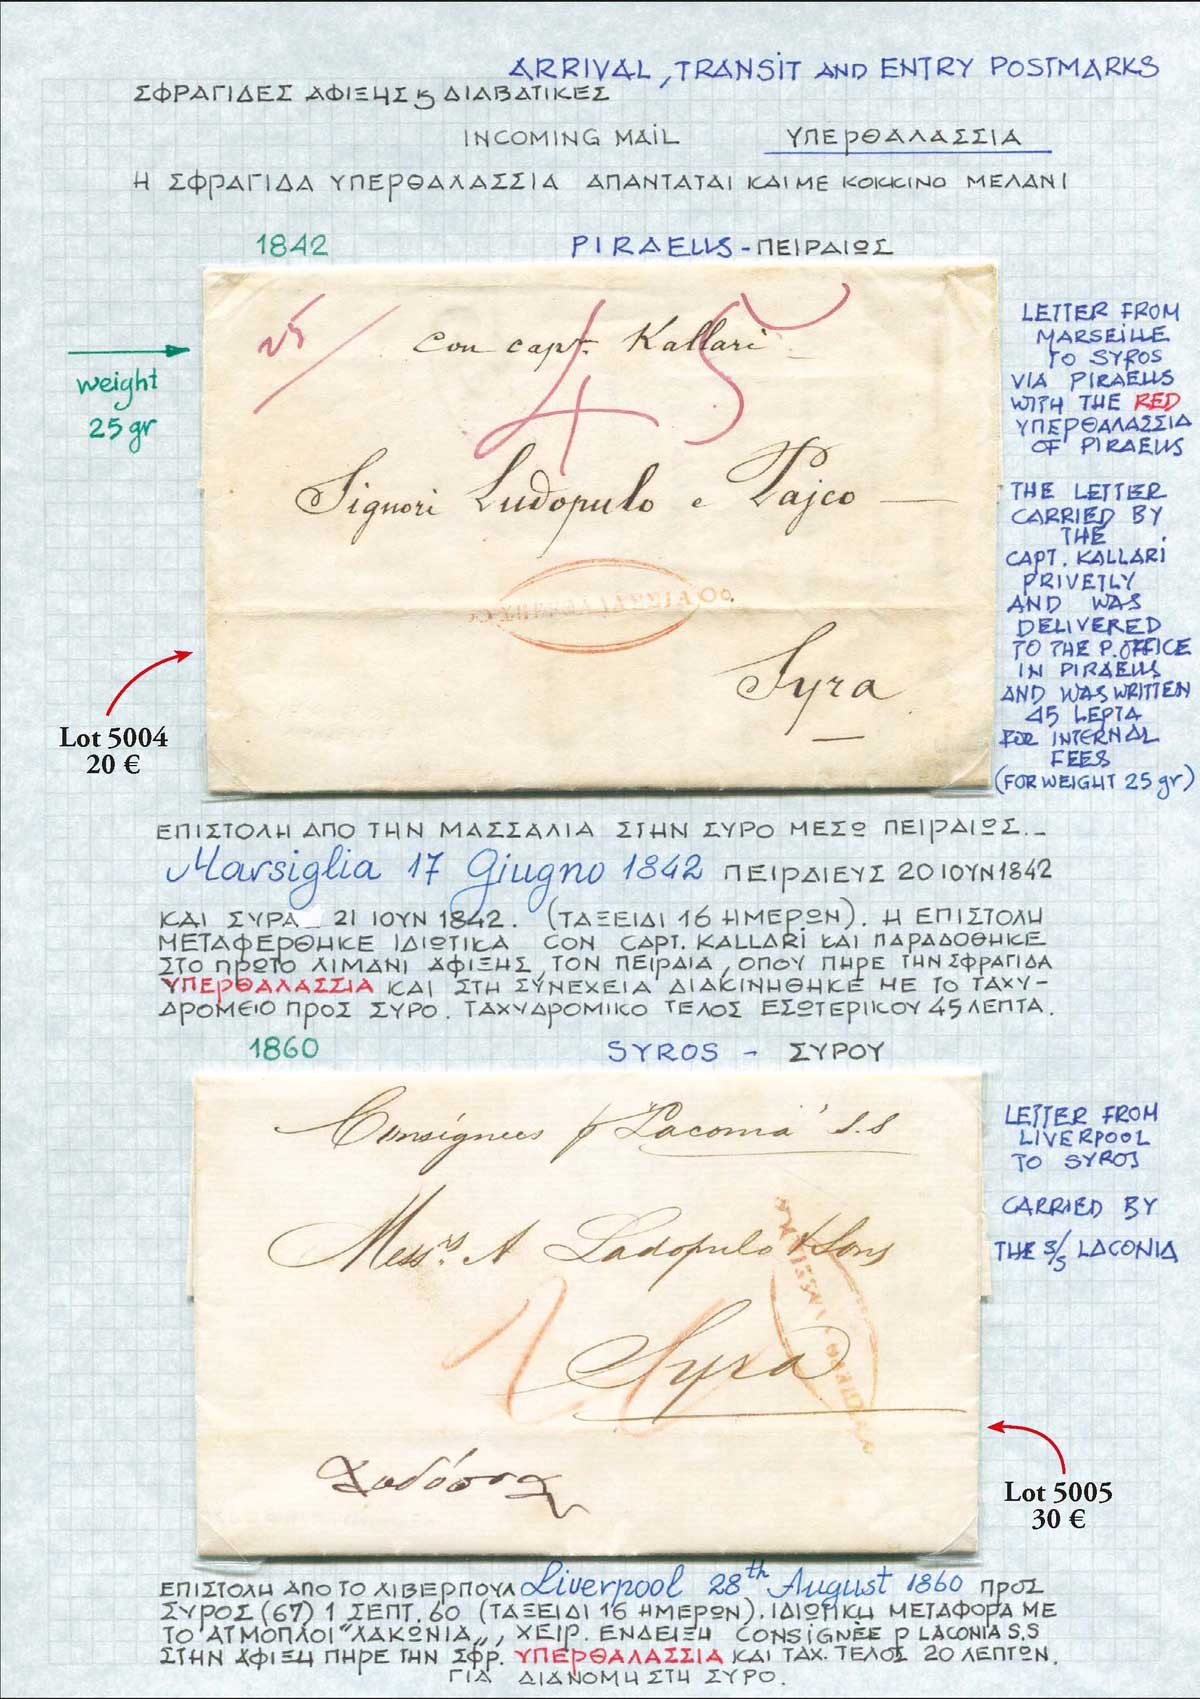 ARRIVAL, TRANSIT AND ENTRY POSTMARKS
ΣΦΡΑΓΙΔΕΣ ΑΦΙΞΗΣ ϗ ΔΙΑΒΑΤΙΚΕΣ
INCOMING MAIL ΥΠΕΡΘΑΛΑΣΣΙΑ
Η ΣΦΡΑΓΙΔΑ ΥΠΕΡΘΑΛΑΣΣΙΑ ΑΠΑΝΤΑΤΑΙ ΚΑΙ ΜΕ ΚΟΚΚΙΝΟ ΜΕΛΑΝΙ
1842 PIRAEUS - ΠΕΙΡΑΙΩΣ
weight
25 gr
25
45
Con capt. Kallari
Signori Ludopulo e Pajco
Syra
LETTER FROM
MARSEILLE
TO SYROS
VIA PIRAEUS
WITH THE RED
ΥΠΕΡΘΑΛΑΣΣΙΑ
OF PIRAEUS
THE LETTER
CARRIED BY
THE
CAPT. KALLARI
PRIVETLY
AND WAS
DELIVERED
TO THE P. OFFICE
IN PIRAEUS
AND WAS WRITTEN
45 LEPTA
FOR INTERNAL
FEES
(FOR WEIGHT 25 gr)
Lot 5004
20 €
ΕΠΙΣΤΟΛΗ ΑΠΟ ΤΗΝ ΜΑΣΣΑΛΙΑ ΣΤΗΝ ΣΥΡΟ ΜΕΣΩ ΠΕΙΡΑΙΩΣ._
Marsiglia 17 Giugno 1842 ΠΕΙΡΑΙΕΥΣ 20 ΙΟΥΝ 1842
ΚΑΙ ΣΥΡΑ 21 ΙΟΥΝ 1842. (ΤΑΞΕΙΔΙ 16 ΗΜΕΡΩΝ). Η ΕΠΙΣΤΟΛΗ
ΜΕΤΑΦΕΡΘΗΚΕ ΙΔΙΩΤΙΚΑ CON CAPT. KALLARI ΚΑΙ ΠΑΡΑΔΟΘΗΚΕ
ΣΤΟ ΠΡΩΤΟ ΛΙΜΑΝΙ ΑΦΙΞΗΣ, ΤΟΝ ΠΕΙΡΑΙΑ, ΟΠΟΥ ΠΗΡΕ ΤΗΝ ΣΦΡΑΓΙΔΑ
ΥΠΕΡΘΑΛΑΣΣΙΑ ΚΑΙ ΣΤΗ ΣΥΝΕΧΕΙΑ ΔΙΑΚΙΝΗΘΗΚΕ ΜΕ ΤΟ ΤΑΧΥ-
ΔΡΟΜΕΙΟ ΠΡΟΣ ΣΥΡΟ. ΤΑΧΥΔΡΟΜΙΚΟ ΤΕΛΟΣ ΕΣΩΤΕΡΙΚΟΥ 45 ΛΕΠΤΑ.
1860 SYROS - ΣΥΡΟΥ
Consignees p "Laconia" S.S
Messrs. A Ladopulo & Sons
Syra
LETTER FROM
LIVERPOOL
TO SYROS
CARRIED BY
THE S/S LACONIA
Lot 5005
30 €
ΕΠΙΣΤΟΛΗ ΑΠΟ ΤΟ ΛΙΒΕΡΠΟΥΛ Liverpool 28th August 1860 ΠΡΟΣ
ΣΥΡΟΣ (67) 1 ΣΕΠΤ. 60 (ΤΑΞΕΙΔΙ 16 ΗΜΕΡΩΝ). ΙΔΙΩΤΙΚΗ ΜΕΤΑΦΟΡΑ ΜΕ
ΤΟ ΑΤΜΟΠΛΟΙ "ΛΑΚΩΝΙΑ", ΧΕΙΡ. ΕΝΔΕΙΞΗ CONSIGNÉE P LACONIA S.S
ΣΤΗΝ ΑΦΙΞΗ ΠΗΡΕ ΤΗΝ ΣΦΡ. ΥΠΕΡΘΑΛΑΣΣΙΑ ΚΑΙ ΤΑΧ. ΤΕΛΟΣ 20 ΛΕΠΤΩΝ.
ΓΙΑ ΔΙΑΝΟΜΗ ΣΤΗ ΣΥΡΟ.